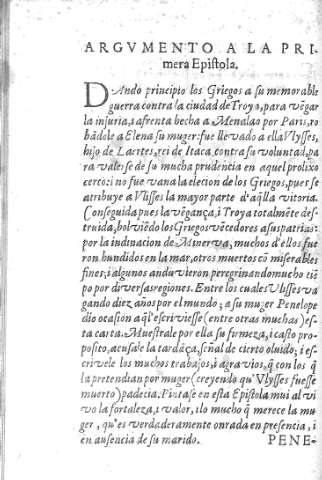 ARGVMENTO A LA PRI
mera Epiſtola.
DAndo principio los Griegos a ſu memorable
guerra contra la ciudad de Troya, para vẽgar
la injuria, i afrenta hecha a Menalao por Paris, ro
bãdole a Elena ſu muger: fue llevado a ella Vlyſſes,
hijo de Laertes, rei de Itaca contra ſu voluntad, pa
ra valerſe de ſu mucha prudencia en aquel prolixo
cerco: i no fue vana la elecion de los Griegos, pues ſe
atribuye a Vliſſes la mayor parte d'aq̃lla vitoria.
Conſeguida pues la vẽgança, i Troya totalmẽte deſ-
truida, bolviẽdo los Griegos vẽcedores a ſus patrias:
por la indinacion de Minerva, muchos d'ellos fue
ron hundidos en la mar, otros muertos cõ miſerables
fines; i algunos anduvieron peregrinando mucho tiẽ
po por diverſas regiones. Entre los cuales Vliſſes va
gando diez años por el mundo; a ſu muger Penelope
dio ocaſion a q̃l' eſcrivieſſe (entre otras muchas) eſ-
ta carta. Mueſtrale por ella ſu firmeza, i caſto pro-
poſito, acuſale la tardãça, ſeñal de cierto olvido; i eſ-
crivele los muchos trabajos, i agravios, q̃ con los q̃
la pretendian por muger (creyendo qu' Vlyſſes fueſſe
muerto) padecia. Pintaſe en eſta Epiſtola mui al vi
vo la fortaleza, i valor, i lo mucho q̃ merece la mu
ger, qu'es verdaderamente onrada en preſencia, i
en auſencia de ſu marido. PENE-